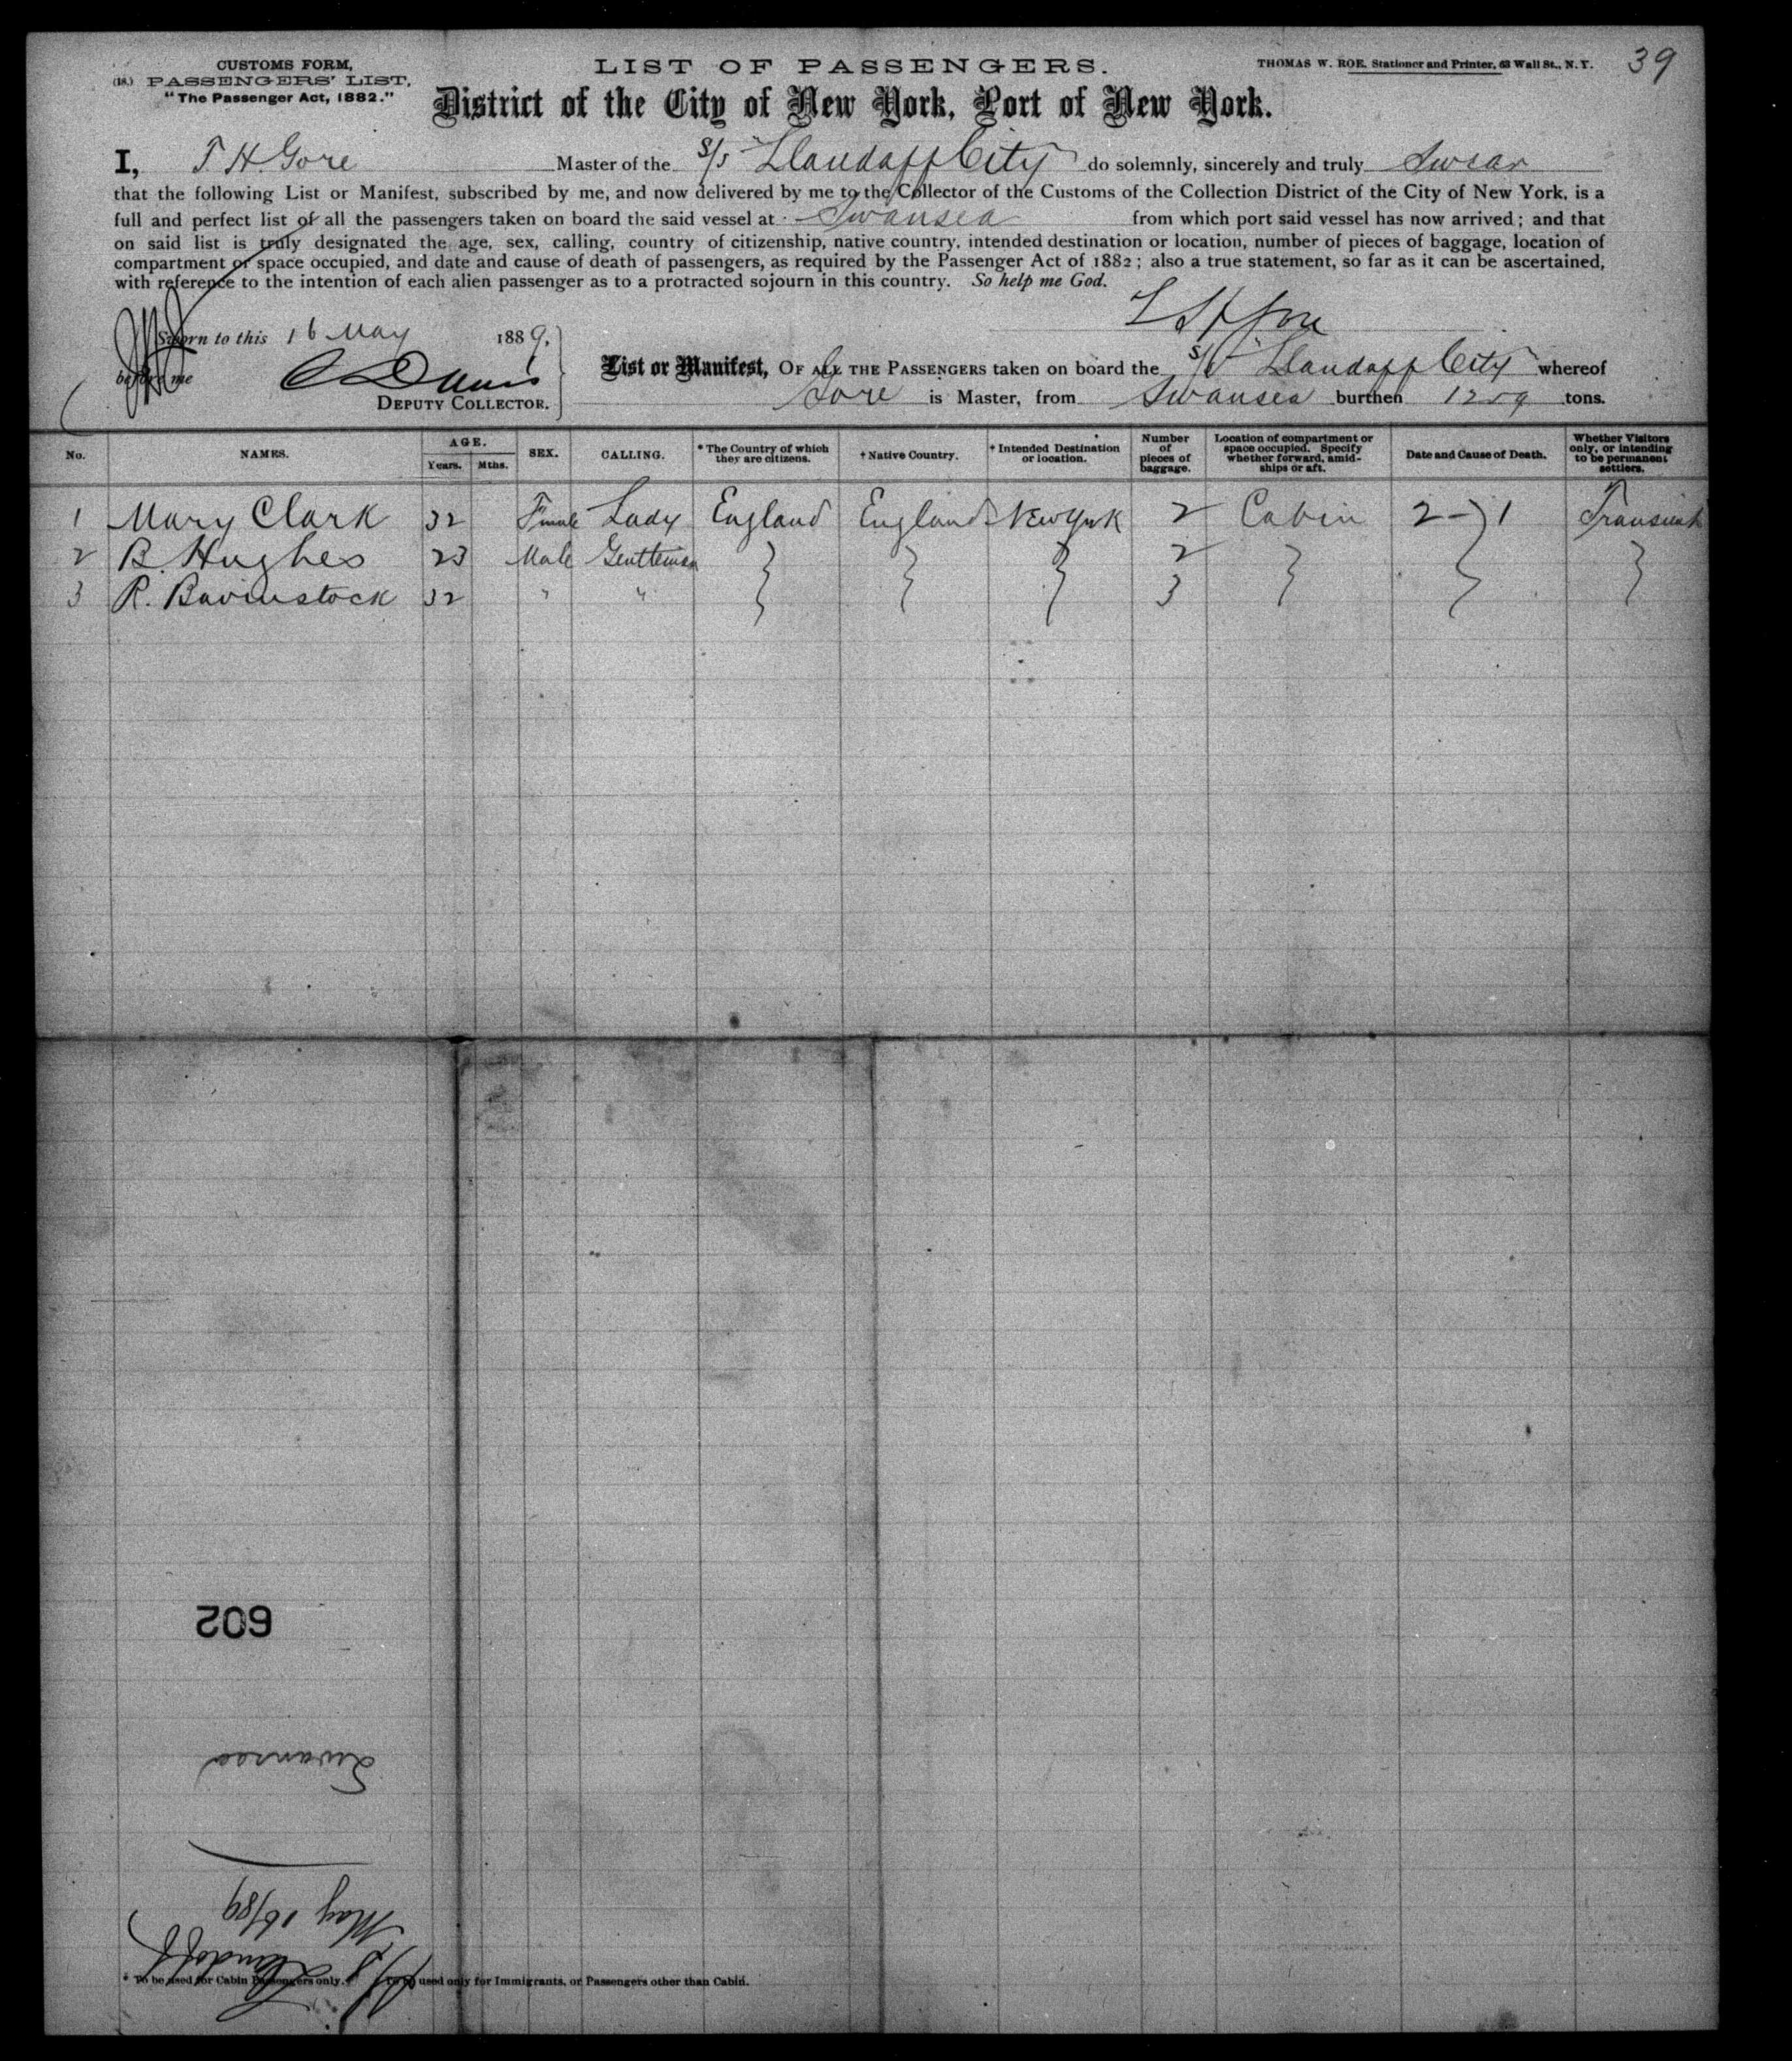 CUSTOMS FORM,
(18.) PASSENGERS' LIST,
"The Passenger Act, 1882."
LIST OF PASSENGERS.
THOMAS W. ROE, Stationer and Printer, 63 Wall St., N.Y.
39
District of the City of New York, Port of New York.
I, T H Gore Master of the S/S "Llandaff City" do solemnly, sincerely and truly Swear
that the following List or Manifest, subscribed by me, and now delivered by me to the Collector of the Customs of the Collection District of the City of New York, is a
full and perfect list of all the passengers taken on board the said vessel at Swansea from which port said vessel has now arrived; and that
on said list is truly designated the age, sex, calling, country of citizenship, native country, intended destination or location, number of pieces of baggage, location of
compartment or space occupied, and date and cause of death of passengers, as required by the Passenger Act of 1882; also a true statement, so far as it can be ascertained,
with reference to the intention of each alien passenger as to a protracted sojourn in this country. So help me God.
T H Gore
Sworn to this 16 May 1889,
before me
DEPUTY COLLECTOR.
List or Manifest, OF ALL THE PASSENGERS taken on board the S/S "Llandaff City" whereof
Gore is Master, from Swansea burthen 1259 tons.
No. NAMES. AGE. Years. Mths. SEX. CALLING. * The Country of which they are citizens. † Native Country. † Intended Destination or location. Number of pieces of baggage. Location of compartment or space occupied. Specify whether forward, amidships or aft. Date and Cause of Death. Whether Visitors only, or intending to be permanent settlers.
1 Mary Clark 32 Female Lady England England New York 2 Cabin 2-1 Transient
2 B. Hughes 23 Male Gentleman } } } 2 } } }
3 R. Bavinstock 32 " " 3
602
Swansea
May 16/89
S/S Llandaff
* To be used for Cabin Passengers only. † To be used only for Immigrants, or Passengers other than Cabin.